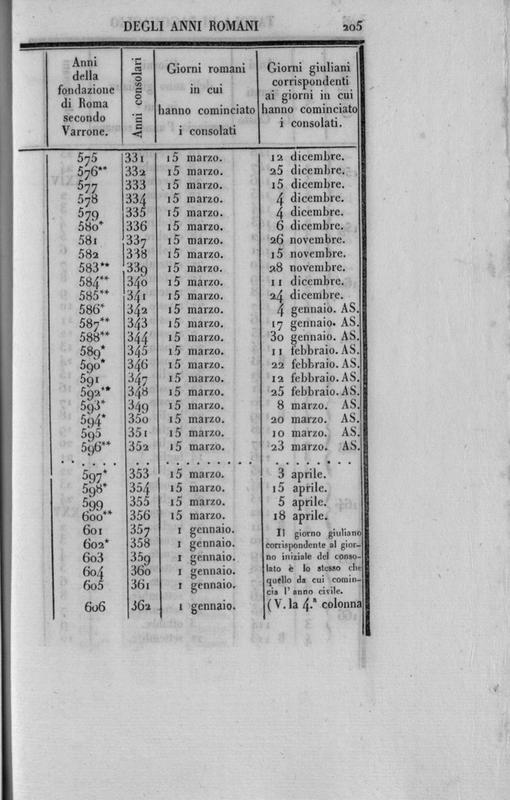 DEGLI ANNI ROMANI 205
Anni della fondazione di Roma secondo Varrone. | Anni consolari | Giorni romani in cui hanno cominciato i consolati | Giorni giuliani corrispondenti ai giorni in cui hanno cominciato i consolati.
575 331 15 marzo. 12 dicembre.
576** 332 15 marzo. 25 dicembre.
577 333 15 marzo. 15 dicembre.
578 334 15 marzo. 4 dicembre.
579 335 15 marzo. 4 dicembre.
580* 336 15 marzo. 6 dicembre.
581 337 15 marzo. 26 novembre.
582 338 15 marzo. 15 novembre.
583** 339 15 marzo. 28 novembre.
584** 340 15 marzo. 11 dicembre.
585** 341 15 marzo. 24 dicembre.
586* 342 15 marzo. 4 gennaio. AS.
587** 343 15 marzo. 17 gennaio. AS.
588** 344 15 marzo. 30 gennaio. AS.
589* 345 15 marzo. 11 febbraio. AS.
590* 346 15 marzo. 22 febbraio. AS.
591 347 15 marzo. 12 febbraio. AS.
592** 348 15 marzo. 25 febbraio. AS.
593* 349 15 marzo. 8 marzo. AS.
594* 350 15 marzo. 20 marzo. AS.
595 351 15 marzo. 10 marzo. AS.
596** 352 15 marzo. 23 marzo. AS.
. . . . . . . . . . . . . . . . . . . . . .
597* 353 15 marzo. 3 aprile.
598* 354 15 marzo. 15 aprile.
599 355 15 marzo. 5 aprile.
600** 356 15 marzo. 18 aprile.
601 357 1 gennaio. Il giorno giuliano
602* 358 1 gennaio. corrispondente al gior-
603 359 1 gennaio. no iniziale del conso-
604 360 1 gennaio. lato è lo stesso che
605 361 1 gennaio. quello da cui comin-
cia l'anno civile.
606 362 1 gennaio. (V. la 4.ª colonna